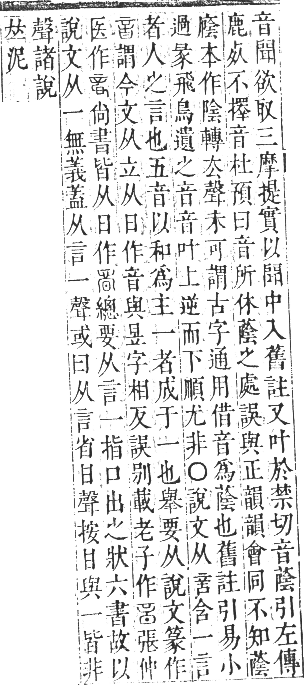 音聞欲取三摩提實以聞中入舊註又叶於禁切音蔭引左傳
鹿死不擇音杜預曰音所休蔭之處誤與正韻韻會同不知蔭
䕃本作陰轉去聲未可謂古字通用借音為蔭也舊註引易小
過彖飛鳥遺之音音叶上逆而下順尤非○說文从言含一言
者人之言也五音以和為主一者成于一也舉要从說文篆作
謂今文从立从日作音與昱字相反誤別載老子作 張仲
医作 尚書皆从日作 總要从言一指口出之狀六書故以
說文从一無義蓋从言一聲或曰从言省甘聲按甘與一皆非
聲諸說
𠀤泥